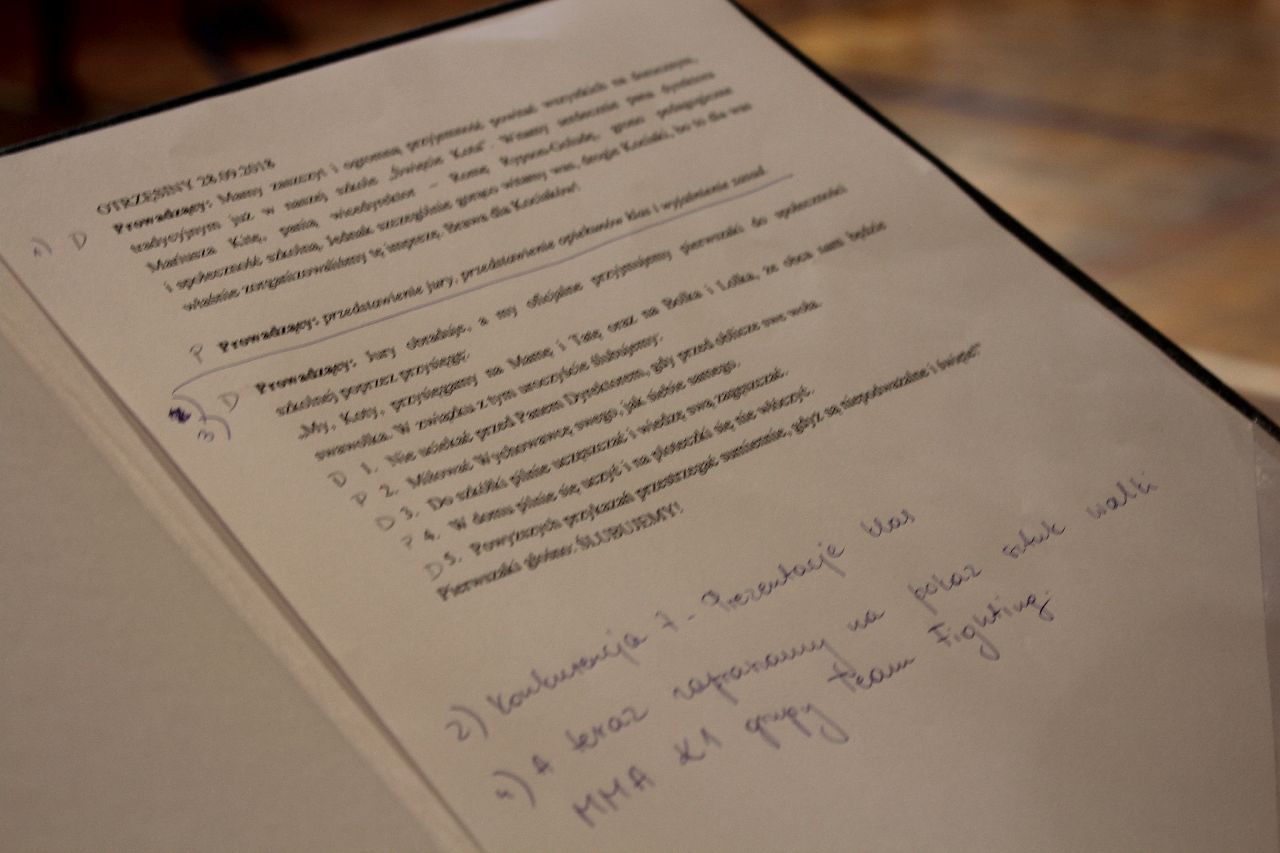 OTRZĘSINY 28.09.2018
1) D Prowadzący: Mamy zaszczyt i ogromną przyjemność powitać wszystkich na dorocznym,
tradycyjnym już w naszej szkole „Święcie Kota". Witamy serdecznie pana dyrektora
Mariusza Kitę, panią wicedyrektor – Romę Rypson-Gołudę, grono pedagogiczne
i społeczność szkolną. Jednak szczególnie gorąco witamy was, drogie Kociaki, bo to dla was
właśnie zorganizowaliśmy tę imprezę. Brawa dla Kociaków!
P Prowadzący: przedstawienie jury, przedstawienie opiekunów klas i wyjaśnienie zasad.
3) D Prowadzący: Jury obraduje, a my oficjalne przyjmujemy pierwszaki do społeczności
szkolnej poprzez przysięgę:
„My, Koty, przysięgamy na Mamę i Tatę oraz na Bolka i Lolka, że obca nam będzie
swawolka. W związku z tym uroczyście ślubujemy:
D 1. Nie uciekać przed Panem Dyrektorem, gdy przed oblicze swe woła.
P 2. Miłować Wychowawcę swego, jak siebie samego.
D 3. Do szkółki pilnie uczęszczać i wiedzę swą zagęszczać.
P 4. W domu pilnie się uczyć i na ploteczki się nie włóczyć.
D 5. Powyższych przykazań przestrzegać sumiennie, gdyż są niepodważalne i święte!"
Pierwszaki głośno: ŚLUBUJEMY!
2) Konkurencja 7 - Prezentacje klas
4) A teraz zapraszamy na pokaz sztuk walki
MMA K1 grupy Team Fighting.